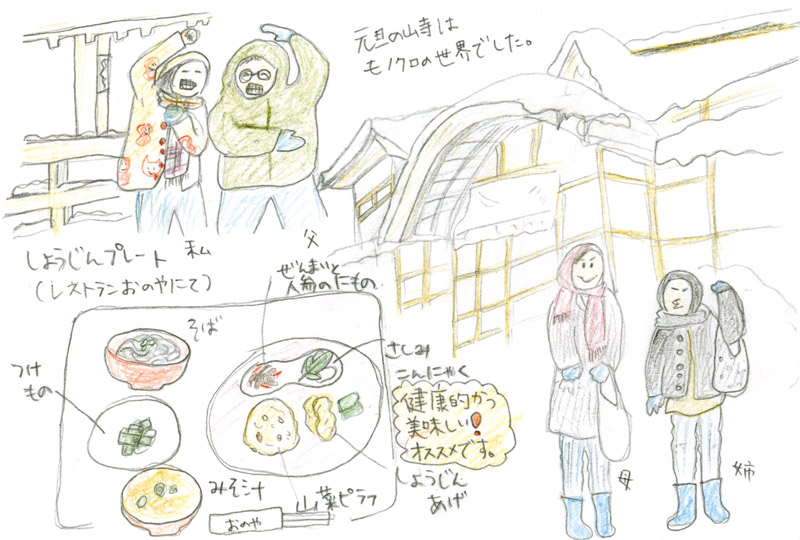 元旦の山寺は
モノクロの世界でした。
私
父
しょうじんプレート
(レストランおのやにて)
ぜんまいと
人参のにもの
そば
さしみ
こんにゃく
つけ
もの
健康的かつ
美味しい!
オススメです。
みそ汁
山菜ピラフ
しょうじん
あげ
おのや
母
姉